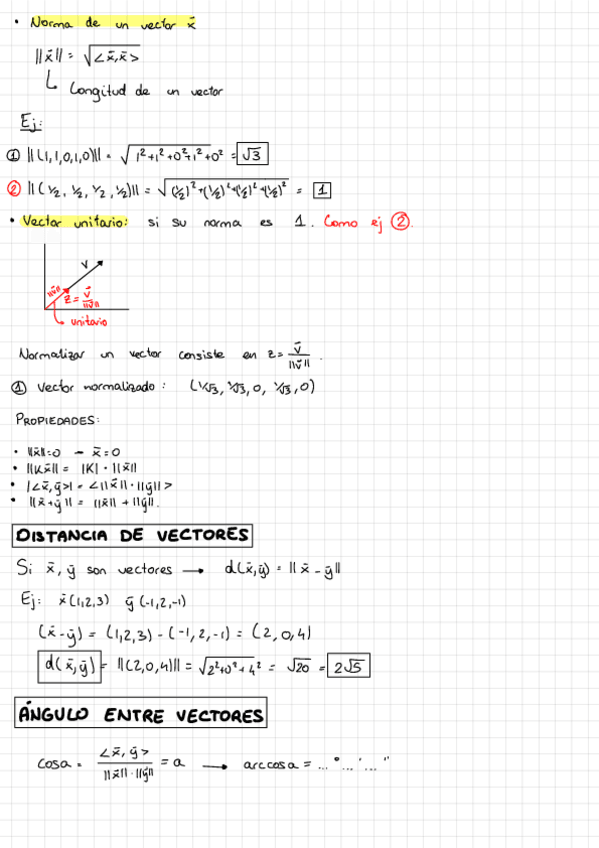 • Norma de un vector x̄
||x̄|| = √<x̄,x̄>
Longitud de un vector
Ej:
① ||(1,1,0,1,0)|| = √1²+1²+0²+1²+0² = √3
② ||(1/2, 1/2, 1/2, 1/2)|| = √(1/2)²+(1/2)²+(1/2)²+(1/2)² = 1
• Vector unitario: si su norma es 1. Como ej ②.
V
||v̄|| z = v̄/||v̄||
unitario
Normalizar un vector consiste en z = v̄/||v̄||.
① Vector normalizado: (1/√3, 1/√3, 0, 1/√3, 0)
PROPIEDADES:
• ||x̄||=0 – x̄=0
• ||Kx̄|| = |K| · ||x̄||
• |<x̄,ȳ>| = <||x̄|| · ||ȳ||>
• ||x̄+ȳ|| = ||x̄|| + ||ȳ||.
DISTANCIA DE VECTORES
Si x̄, ȳ son vectores → d(x̄,ȳ) = ||x̄ - ȳ||
Ej: x̄(1,2,3) ȳ(-1,2,-1)
(x̄-ȳ) = (1,2,3) - (-1,2,-1) = (2,0,4)
d(x̄,ȳ) = ||(2,0,4)|| = √2²+0²+4² = √20 = 2√5
ÁNGULO ENTRE VECTORES
cosa = <x̄,ȳ>/||x̄||·||ȳ|| = a → arccosa = ...°...'...''